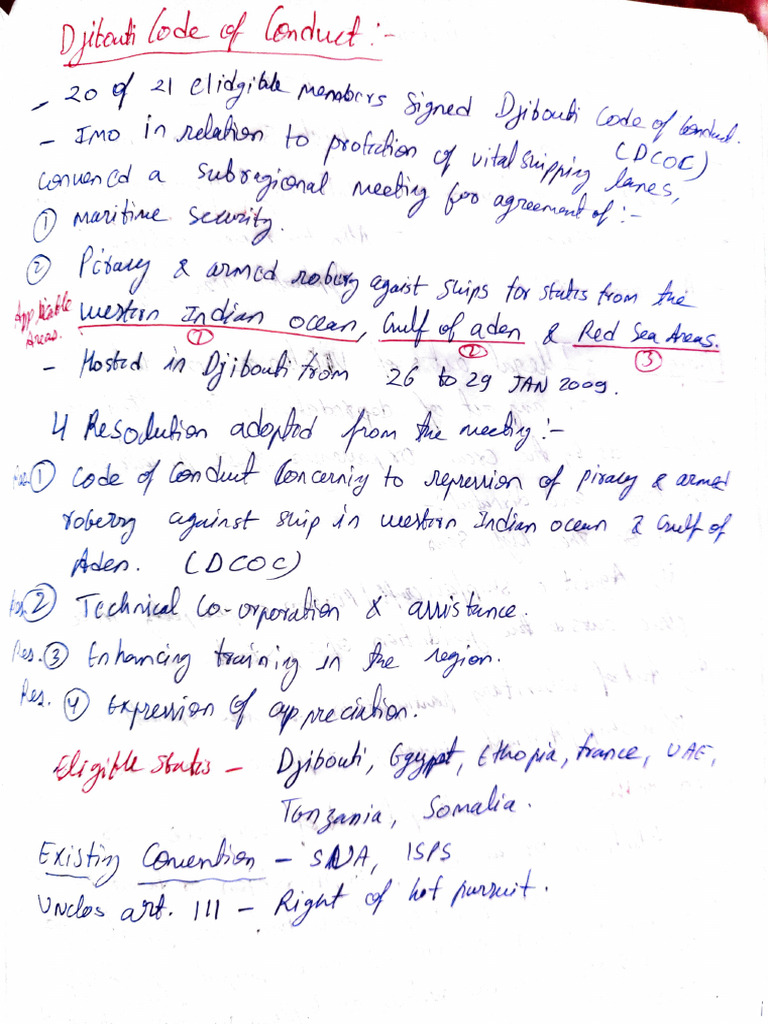 Djibouti Code of Conduct :-
- 20 of 21 elidgible members signed Djibouti Code of Conduct.
(DCOC)
- IMO in relation to protection of vital shipping lanes,
convened a subregional meeting for agreement of :-
① maritime security.
② Piracy & armed robery against ships for states from the
Applicable Areas. western Indian ocean, Gulf of aden & Red Sea Areas.
① ② ③
- Hosted in Djibouti from 26 to 29 JAN 2009.
4 Resolution adopted from the meeting :-
Res. ① Code of Conduct Concerning to repression of piracy & armed
robery against ship in western Indian ocean & Gulf of
Aden. (DCOC)
Res. ② Technical Co-orporation & assistance.
Res. ③ Enhancing training in the region.
Res. ④ Expression of appreciation.
Eligible States - Djibouti, Egypt, Ethopia, france, UAE,
Tanzania, Somalia.
Existing Convention - SUA, ISPS
UNclos art. 111 - Right of hot pursuit.